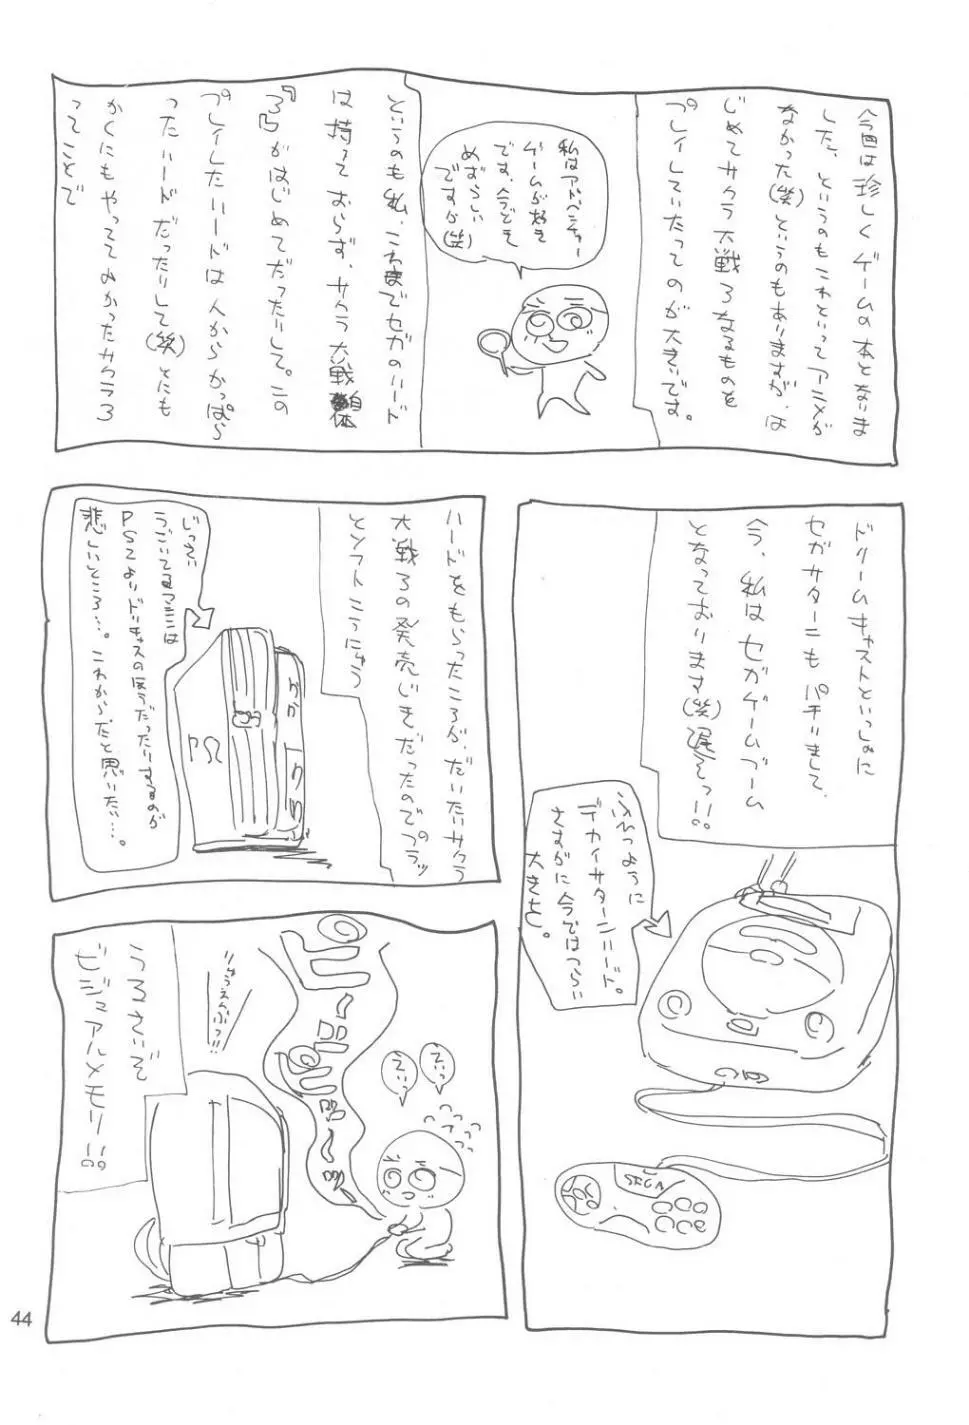 今回は珍しくゲームの本となりま
した、というのもこれといってアニメが
なかった(笑)というのもありますが、は
じめてサクラ大戦3なるものを
プレイしていたってのが大きいです。
私はアドベンチャー
ゲームが好き
です、今どき
めずらしい
ですが(笑)
というのも私、これまでセガのハード
は持っておらず、サクラ大戦自体
『3』がはじめてだったりして。この
プレイしたハードは人からかっぱら
ったハードだったりして(笑)とにも
かくにもやっててよかったサクラ3
ってことで
ドリームキャストといっしょに
セガサターンもパチりまして、
今、私はセガゲームブーム
となっております(笑)遅そっ!!
ふれつように
デカイサターンハード。
さすがに今ではつらい
大きさ。
SEGA
ハードをもらったころが、だいたいサクラ
大戦3の発売じきだったのでプラッ
とソフトこうにゅう
じっさい
うごいてるマシンは
PS2よりドリキャスのほうだったりするのが
悲しいところ…。これからだと思いたい…。
PS2
うるさいぞ
ビジュアルメモリー!!
ピーーピーー
えいっ
えいっ
44